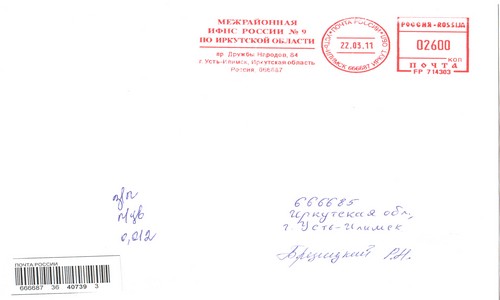 МЕЖРАЙОННАЯ
ИФНС РОССИИ № 9
ПО ИРКУТСКОЙ ОБЛАСТИ
пр. Дружбы Народов, 64
г. Усть-Илимск, Иркутская область,
Россия, 666687
ПОЧТА РОССИИ
22.03.11
УСТЬ-ИЛИМСК 666687 ИРКУТ. ОБЛ
РОССИЯ-ROSSIJA
02600
коп
ПОЧТА
FP 714303
0,012
666685
Иркутская обл,
г. Усть-Илимск
Р.Н.
ПОЧТА РОССИИ
666687 36 40739 3